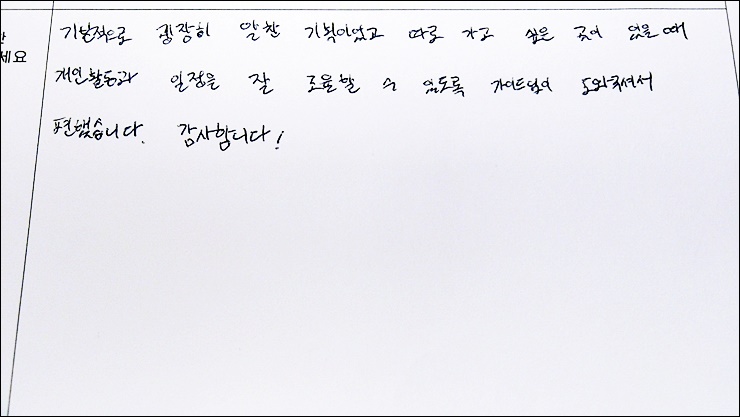 기본적으로 굉장히 알찬 기획이었고 따로 가고 싶은 곳이 있을 때
세요
개인활동과 일정을 잘 조율할 수 있도록 가이드님이 도와주셔서
편했습니다. 감사합니다!